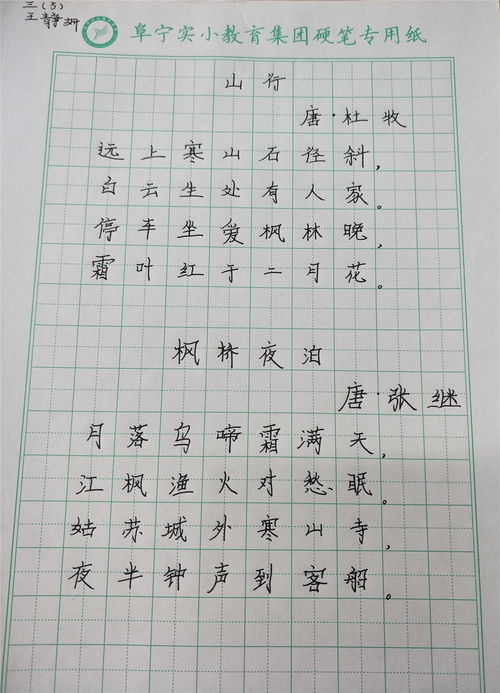 三(5)
王静珊
阜宁实小教育集团硬笔专用纸
山行
唐·杜牧
远上寒山石径斜,
白云生处有人家。
停车坐爱枫林晚,
霜叶红于二月花。
枫桥夜泊
唐·张继
月落乌啼霜满天,
江枫渔火对愁眠。
姑苏城外寒山寺,
夜半钟声到客船。